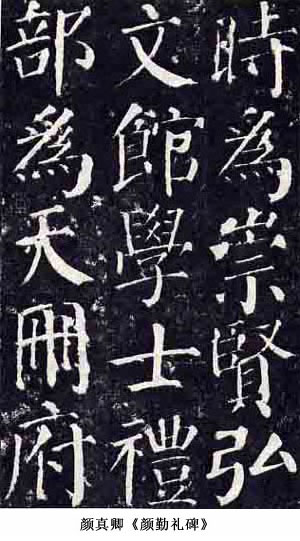 時為崇賢弘
文館學士禮
部為天冊府
颜真卿《颜勤礼碑》